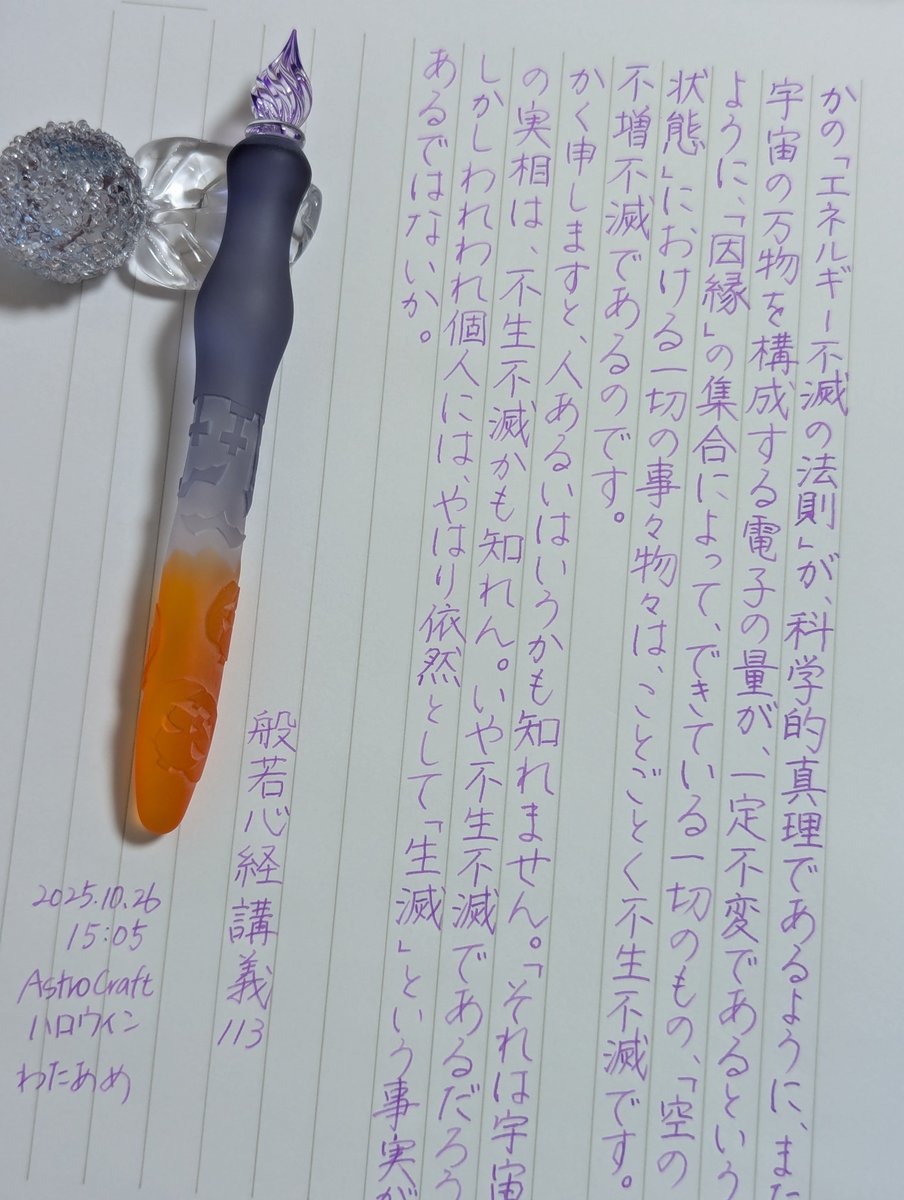 かの「エネルギー不滅の法則」が、科学的真理であるように、また
宇宙の万物を構成する電子の量が、一定不変であるという
ように、「因縁」の集合によって、できている一切のもの、「空の
状態」における一切の事々物々は、ことごとく不生不滅です。
不増不滅であるのです。
かく申しますと、人あるいはいうかも知れません。「それは宇宙
の実相は、不生不滅かも知れん。いや不生不滅であるだろう
しかしわれわれ個人には、やはり依然として「生滅」という事実が
あるではないか。
般若心経講義113
2025.10.26
15:05
AstroCraft
ハロウィン
わたあめ